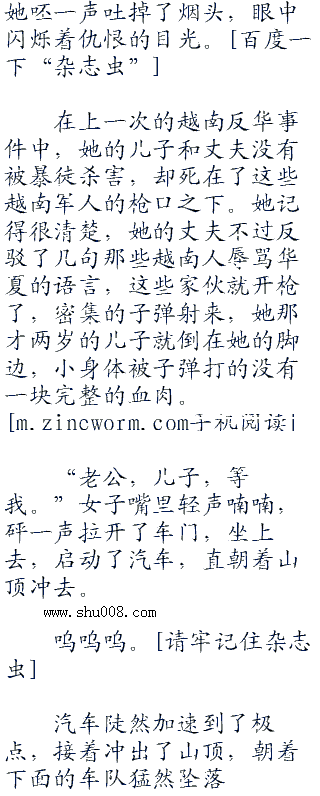 她呸一声吐掉了烟头，眼中
闪烁着仇恨的目光。[百度一
下“杂志虫”]
在上一次的越南反华事
件中，她的儿子和丈夫没有
被暴徒杀害，却死在了这些
越南军人的枪口之下。她记
得很清楚，她的丈夫不过反
驳了几句那些越南人辱骂华
夏的语言，这些家伙就开枪
了，密集的子弹射来，她那
才两岁的儿子就倒在她的脚
边，小身体被子弹打的没有
一块完整的血肉。
[m.zincworm.com手机阅读i
“老公，儿子，等
我。”女子嘴里轻声喃喃，
砰一声拉开了车门，坐上
去，启动了汽车，直朝着山
顶冲去。
www.shu008.com
呜呜呜。[请牢记住杂志
虫]
汽车陡然加速到了极
点，接着冲出了山顶，朝着
下面的车队猛然坠落